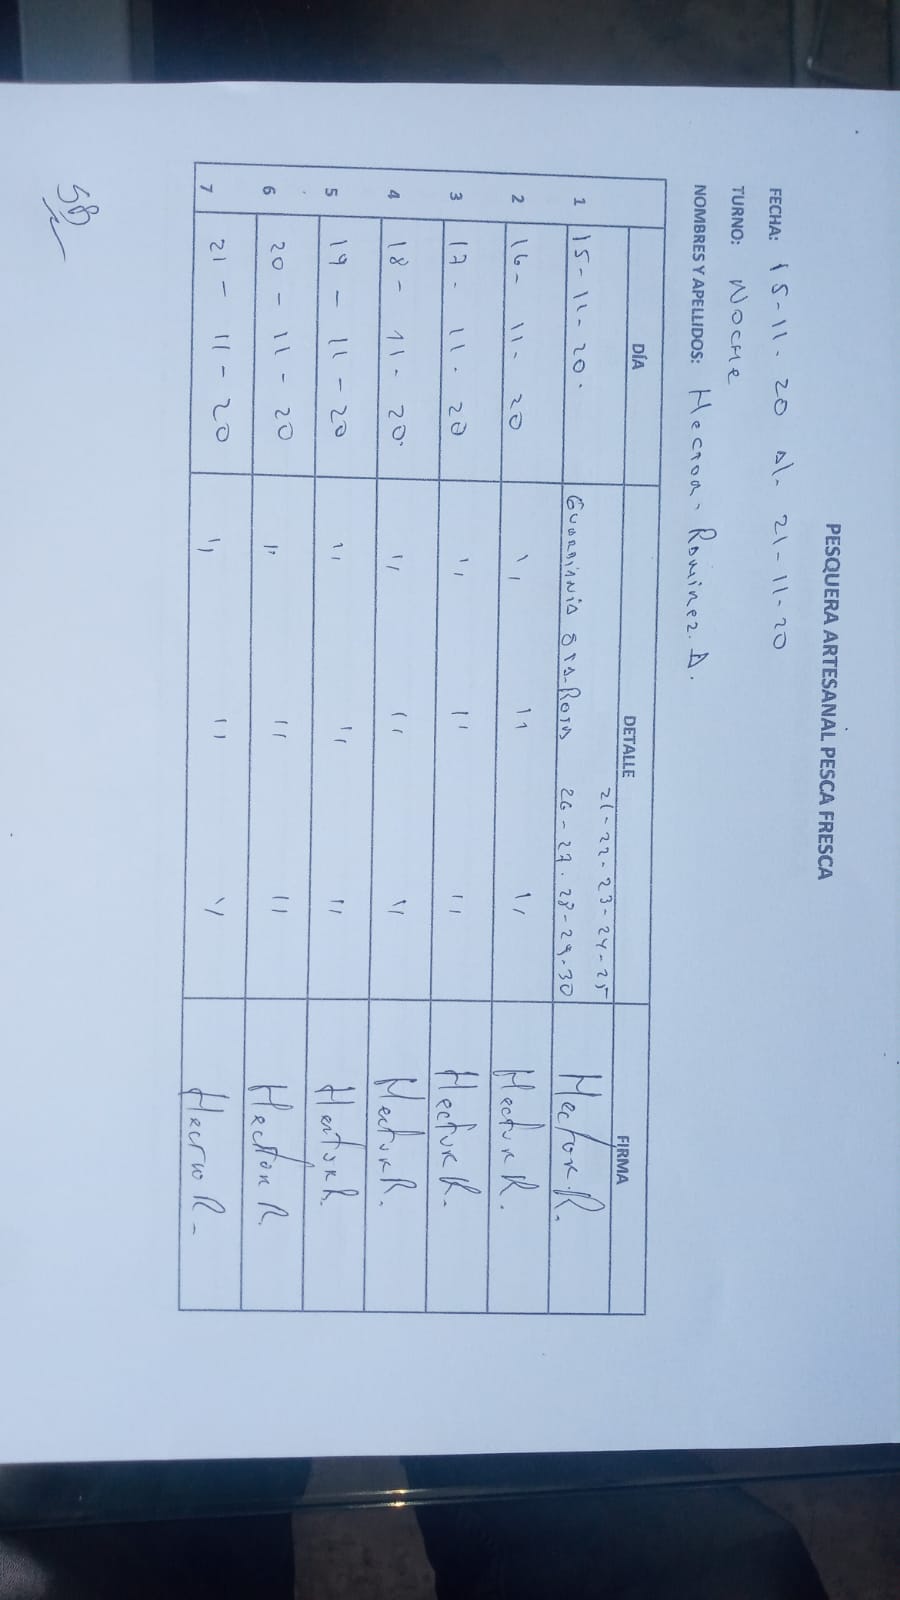 PESQUERA ARTESANAL PESCA FRESCA
FECHA: 15-11-20 Al- 21-11-20
TURNO: NOCHE
NOMBRES Y APELLIDOS: Hector. Ramirez. D.
DÍA DETALLE FIRMA
21-22-23-24-25
1 15-11-20. Guardianía STA-Rosa 26-27-28-29-30 Hector.R.
2 16-11-20 " " " Hector R.
3 17-11-20 " " " Hector R.
4 18-11-20. " " " Hector R.
5 19-11-20 " " " Hector R.
6 20-11-20 " " " Hector R.
7 21-11-20 " " " Hector R-